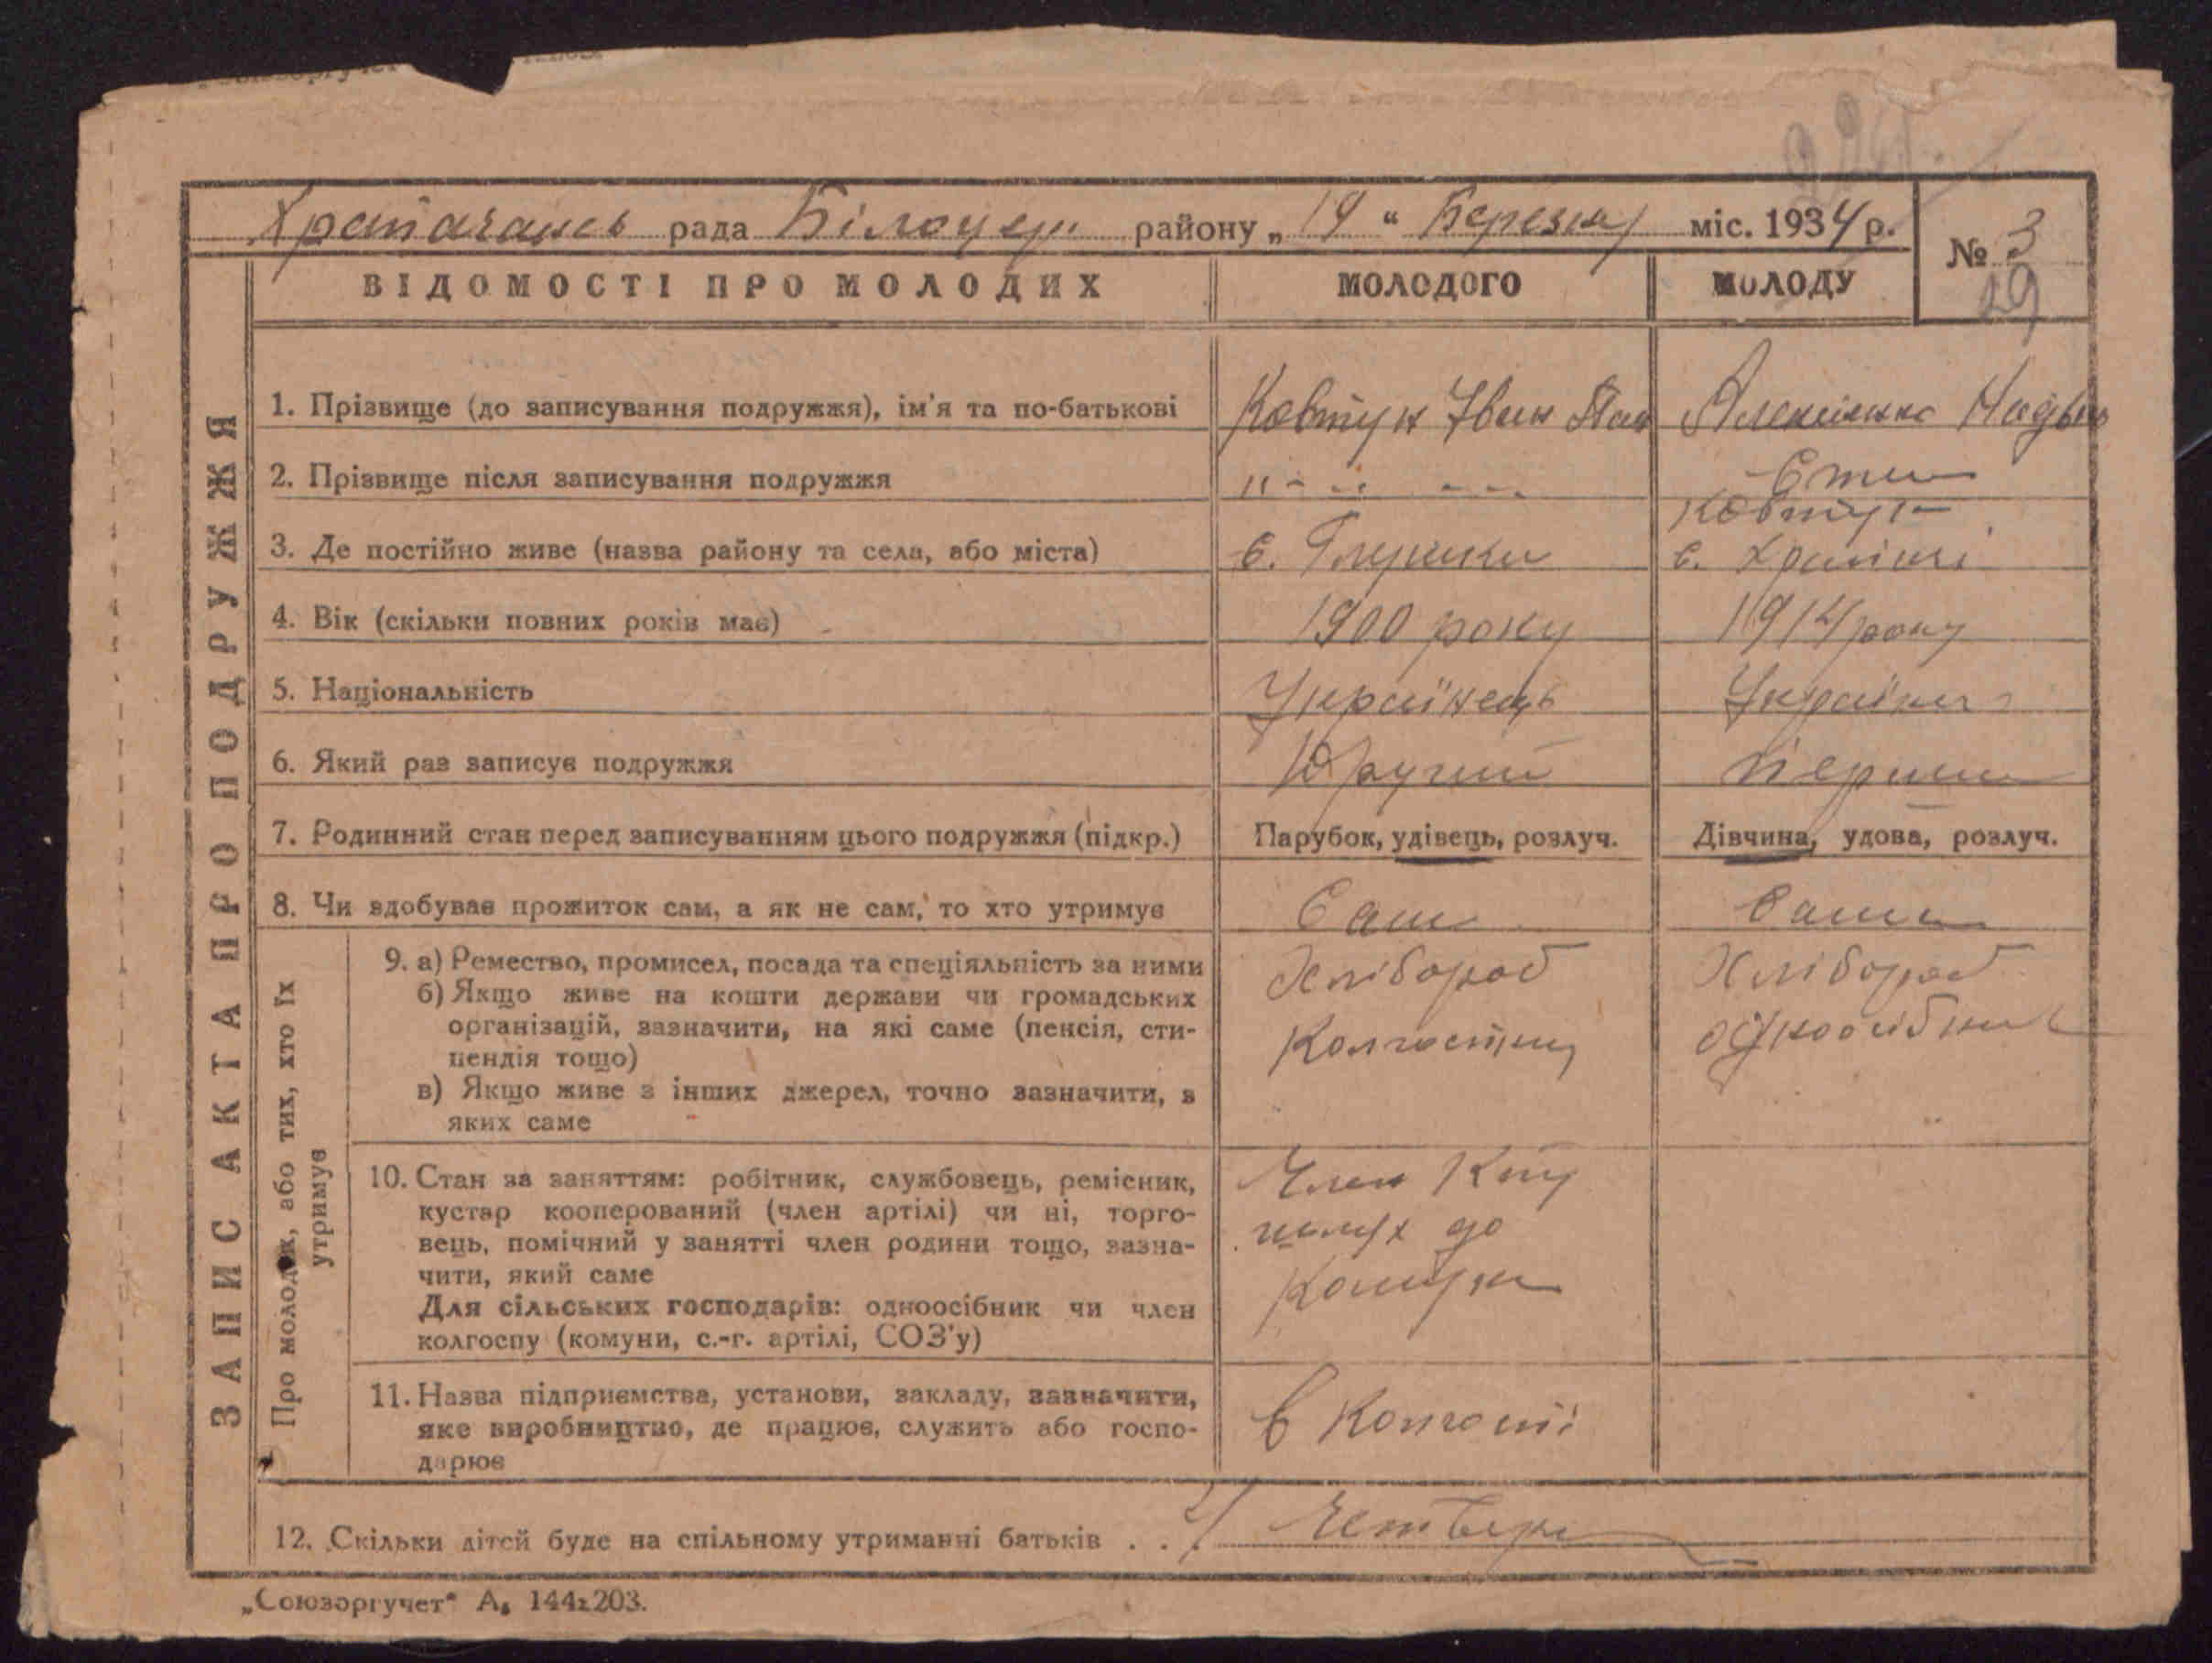 рада Білоцер. району „ 19 “ Березня міс. 1934 р.
№ 3
29
ВІДОМОСТІ ПРО МОЛОДИХ МОЛОДОГО МОЛОДУ
ЗАПИС АКТА ПРО ПОДРУЖЖЯ
1. Прізвище (до записування подружжя), ім'я та по-батькові Ковтун Іван Пан
2. Прізвище після записування подружжя Ковтун
3. Де постійно живе (назва району та села, або міста) с. Глушки с. Храпачі
4. Вік (скільки повних років має) 1900 року 1914 року
5. Національність Українець Українка
6. Який раз записує подружжя Другий Перший
7. Родинний стан перед записуванням цього подружжя (підкр.) Парубок, удівець, розлуч. Дівчина, удова, розлуч.
8. Чи здобуває прожиток сам, а як не сам, то хто утримує Сам Сама
Про молодих, або тих, хто їх
утримує
9. а) Ремество, промисел, посада та спеціяльність за ними Хлібороб Хлібороб
б) Якщо живе на кошти держави чи громадських
організацій, зазначити, на які саме (пенсія, сти-
пендія тощо) одноосібник
в) Якщо живе з інших джерел, точно зазначити, з
яких саме
10. Стан за заняттям: робітник, службовець, ремісник, Член
кустар кооперований (член артілі) чи ні, торго-
вець, помічний у занятті член родини тощо, зазна- до
чити, який саме
Для сільських господарів: одноосібник чи член
колгоспу (комуни, с.-г. артілі, СОЗ'у)
11. Назва підприємства, установи, закладу, зазначити, в Колгоспі
яке виробництво, де працює, служить або госпо-
дарює
12. Скільки дітей буде на спільному утриманні батьків . . . Четверо
„Союзоргучет“ А₅ 144х203.